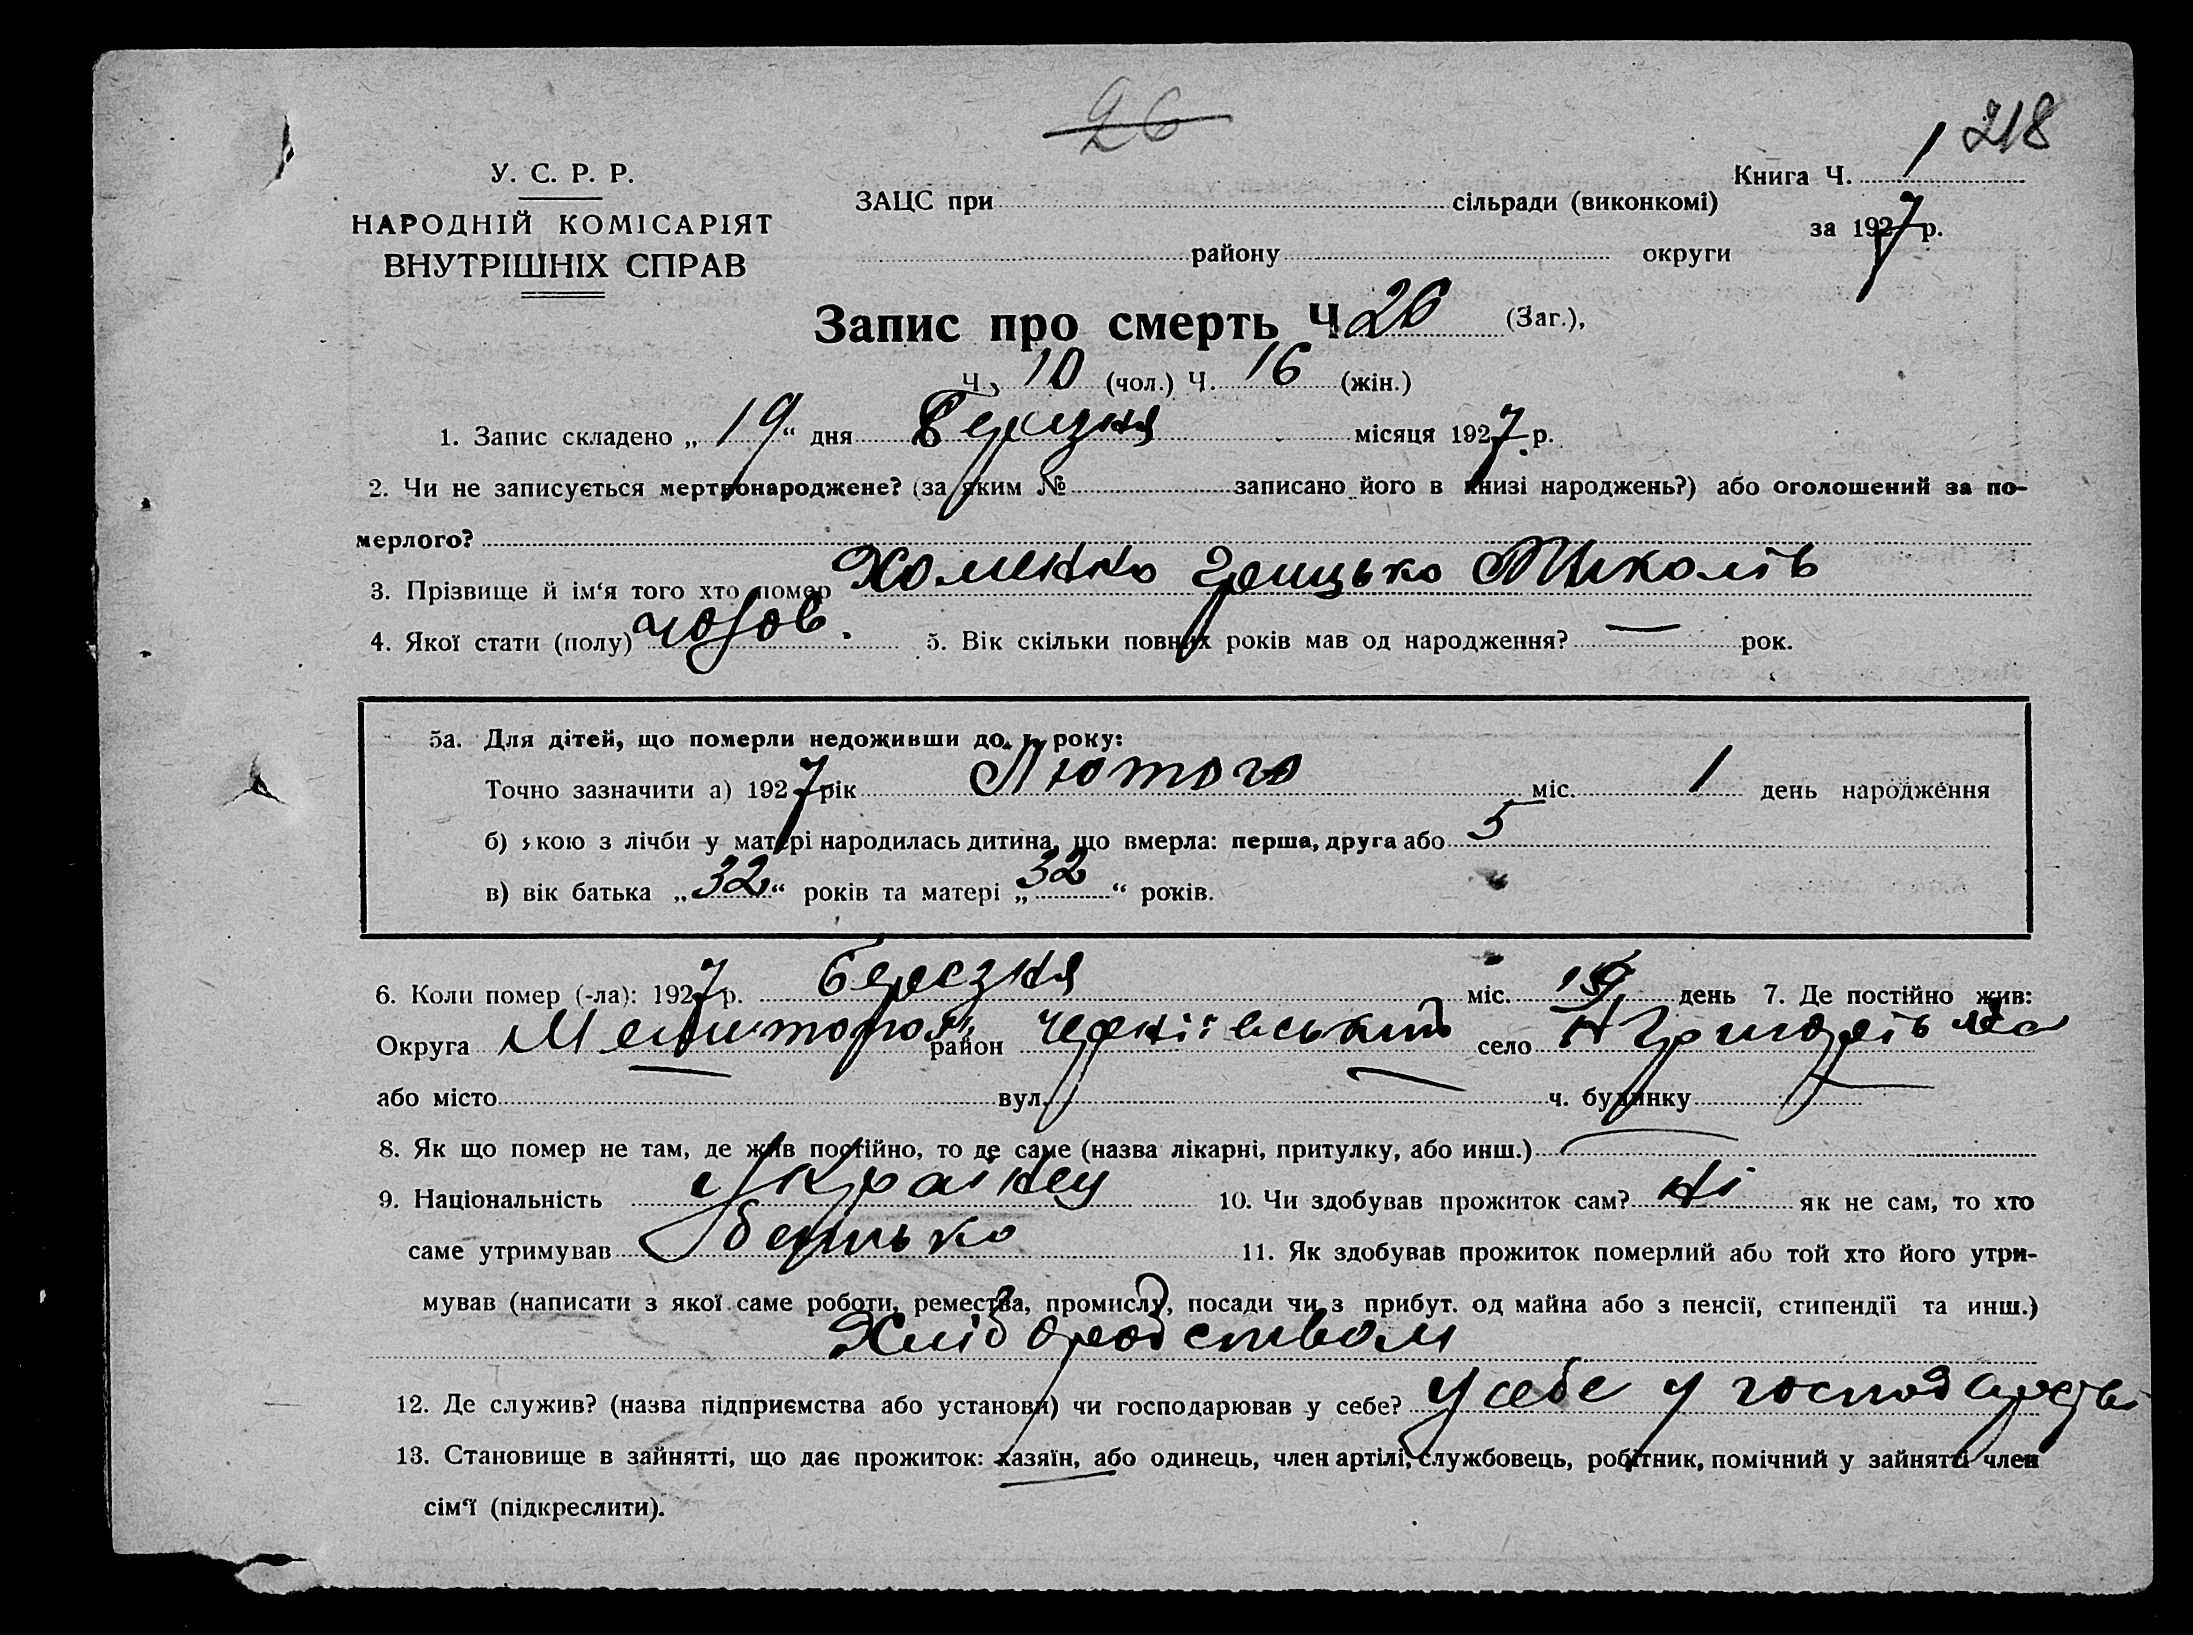 26
218
У. С. Р. Р.
НАРОДНІЙ КОМІСАРІЯТ
ВНУТРІШНІХ СПРАВ
Книга Ч. 1
ЗАЦС при сільради (виконкомі)
за 1927 р.
району округи
Запис про смерть Ч 26 (Заг.),
Ч. 10 (чол.) Ч. 16 (жін.)
1. Запис складено „ 19 “ дня Березня місяця 1927 р.
2. Чи не записується мертвонароджене? (за яким № записано його в книзі народжень?) або оголошений за по-
мерлого?
3. Прізвище й ім‘я того хто помер Хоменко Грицько Миколів
4. Якої стати (полу) чолов. 5. Вік скільки повних років мав од народження? — рок.
5а. Для дітей, що померли недоживши до 1 року:
Точно зазначити а) 1927 рік Лютого міс. 1 день народження
б) якою з лічби у матері народилась дитина, що вмерла: перша, друга або 5
в) вік батька „ 32 “ років та матері „ 32 “ років.
6. Коли помер (-ла): 1927 р. Березня міс. день 7. Де постійно жив:
Округа район Чернігівський село
або місто — вул. — ч. будинку —
8. Як що помер не там, де жив постійно, то де саме (назва лікарні, притулку, або инш.) —
9. Національність Українец 10. Чи здобував прожиток сам? Ні як не сам, то хто
саме утримував батько 11. Як здобував прожиток померлий або той хто його утри-
мував (написати з якої саме роботи, ремества, промислу, посади чи з прибут. од майна або з пенсії, стипендії та инш.)
Хліборобством
12. Де служив? (назва підприємства або установи) чи господарював у себе? У себе у господарстві
13. Становище в зайнятті, що дає прожиток: хазяїн, або одинець, член артілі, службовець, робітник, помічний у зайнятті член
сім‘ї (підкреслити).